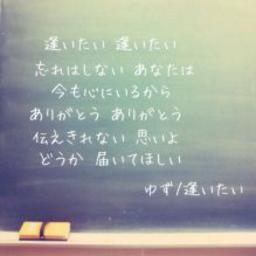 逢いたい 逢いたい
忘れはしない あなたは
今も心にいるから
ありがとう ありがとう
伝えきれない 思いよ
どうか 届いてほしい
ゆず/逢いたい